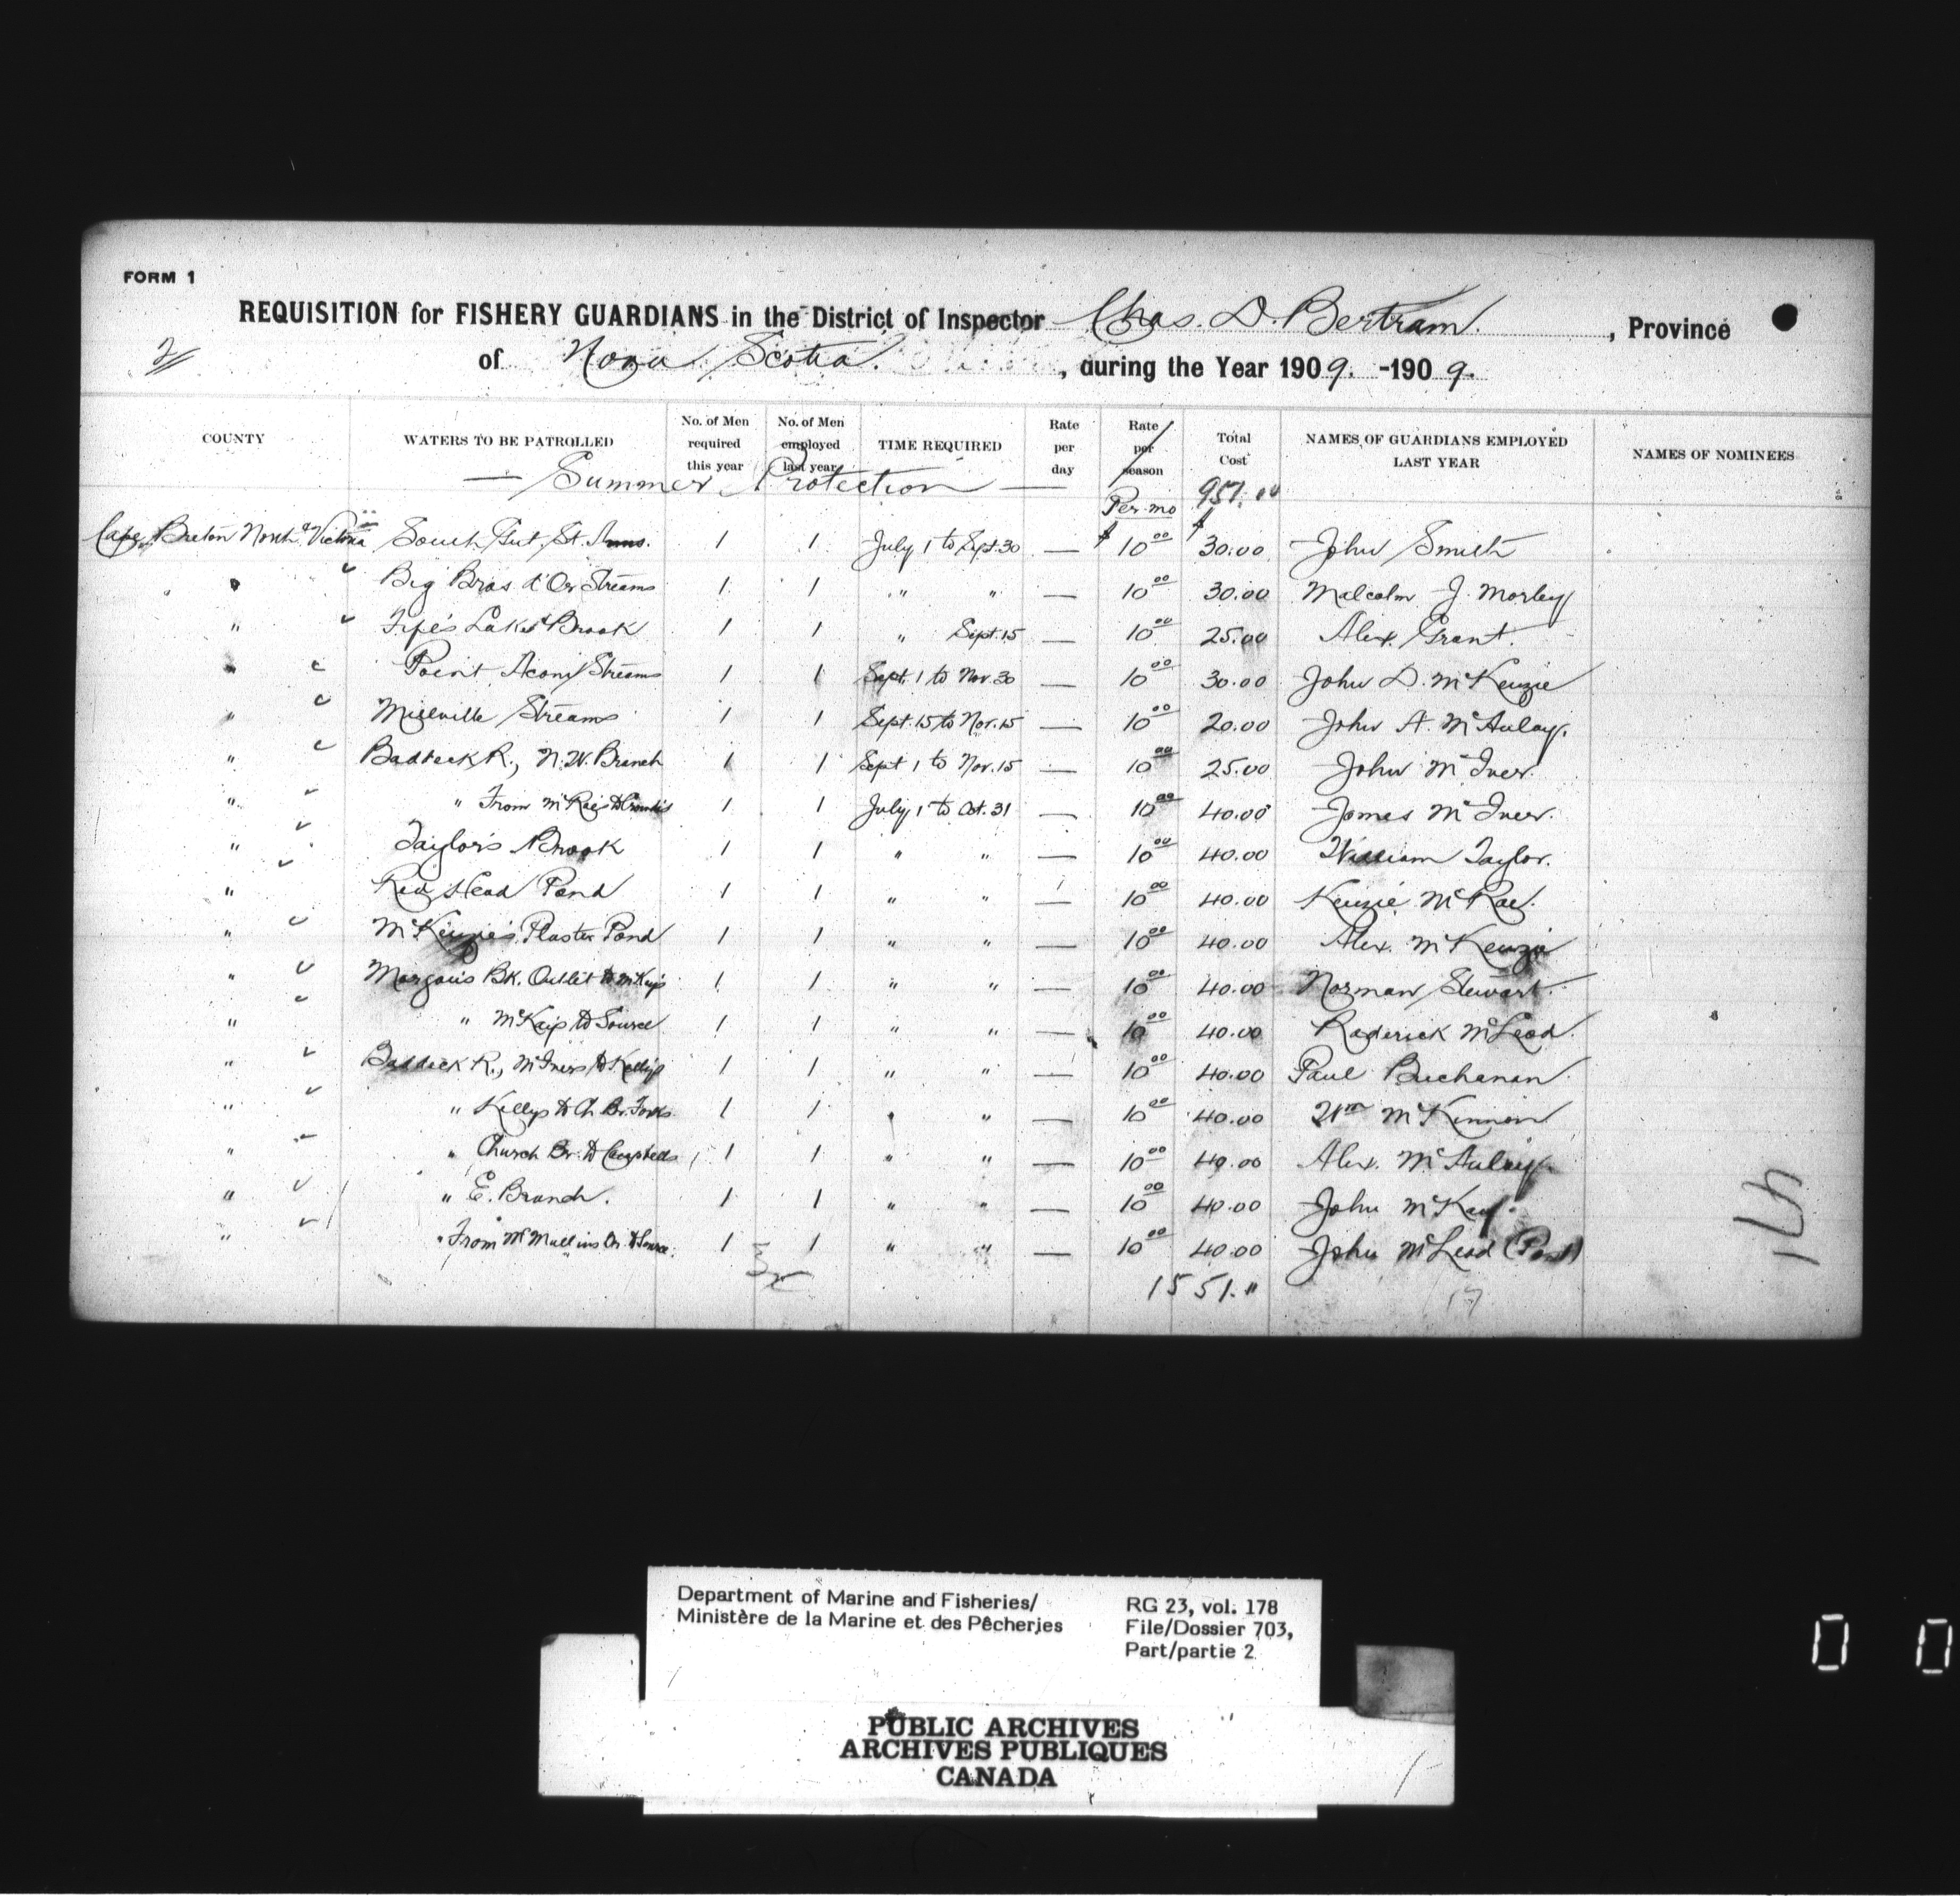 FORM 1
REQUISITION for FISHERY GUARDIANS in the District of Inspector Chas. D. Bertram. , Province
2 of Nova Scotia. , during the Year 1909. -1909.
COUNTY WATERS TO BE PATROLLED No. of Men required this year No. of Men employed last year TIME REQUIRED Rate per day Rate per season Total Cost NAMES OF GUARDIANS EMPLOYED LAST YEAR NAMES OF NOMINEES
— Summer Protection —
Per mo 957.00
Cape Breton North & Victoria South Gut, St. Anns. 1 1 July 1 to Sept. 30 — $ 10 00 $ 30.00 John Smith
" Big Bras d'Or Streams 1 1 " " — 10 00 30.00 Malcolm J. Morley
" Fife's Lake & Brook 1 1 " Sept. 15 — 10 00 25.00 Alex. Grant.
" Point Aconi Streams 1 1 Sept. 1 to Nov. 30 — 10 00 30.00 John D. McKenzie
" Millville Streams 1 1 Sept. 15 to Nov. 15 — 10 00 20.00 John A. McAulay.
" Baddeck R., N.W. Branch 1 1 Sept 1 to Nov. 15 — 10 00 25.00 John McIver.
" " From McRae's to 1 1 July 1 to Oct. 31 — 10 00 40.00 James McIver.
" Taylor's Brook 1 1 " " — 10 00 40.00 William Taylor.
" Red Head Pond 1 1 " " — 10 00 40.00 Kenzie McRae.
" McKenzie's Plaster Pond 1 1 " " — 10 00 40.00 Alex. McKenzie
" Bk. Outlet to McKay's 1 1 " " — 10 00 40.00 Norman Stewart.
" " McKay's to Source 1 1 " " — 10 00 40.00 Roderick McLeod.
" Baddeck R., McIver's to Kelly's 1 1 " " — 10 00 40.00 Paul Buchanan.
" " Kelly's to Ch. Br. Forks 1 1 " " — 10 00 40.00 Wm McKinnon
" " Church Br. to Campbells 1 1 " " — 10 00 40.00 Alex. McAulay.
" " E. Branch. 1 1 " " — 10 00 40.00 John McKay.
" " From McMullins Br. to Source. 1 1 " " — 10 00 40.00 John McLeod
1551."
17
Department of Marine and Fisheries/
Ministère de la Marine et des Pêcheries
RG 23, vol. 178
File/Dossier 703,
Part/partie 2
PUBLIC ARCHIVES
ARCHIVES PUBLIQUES
CANADA
0 0